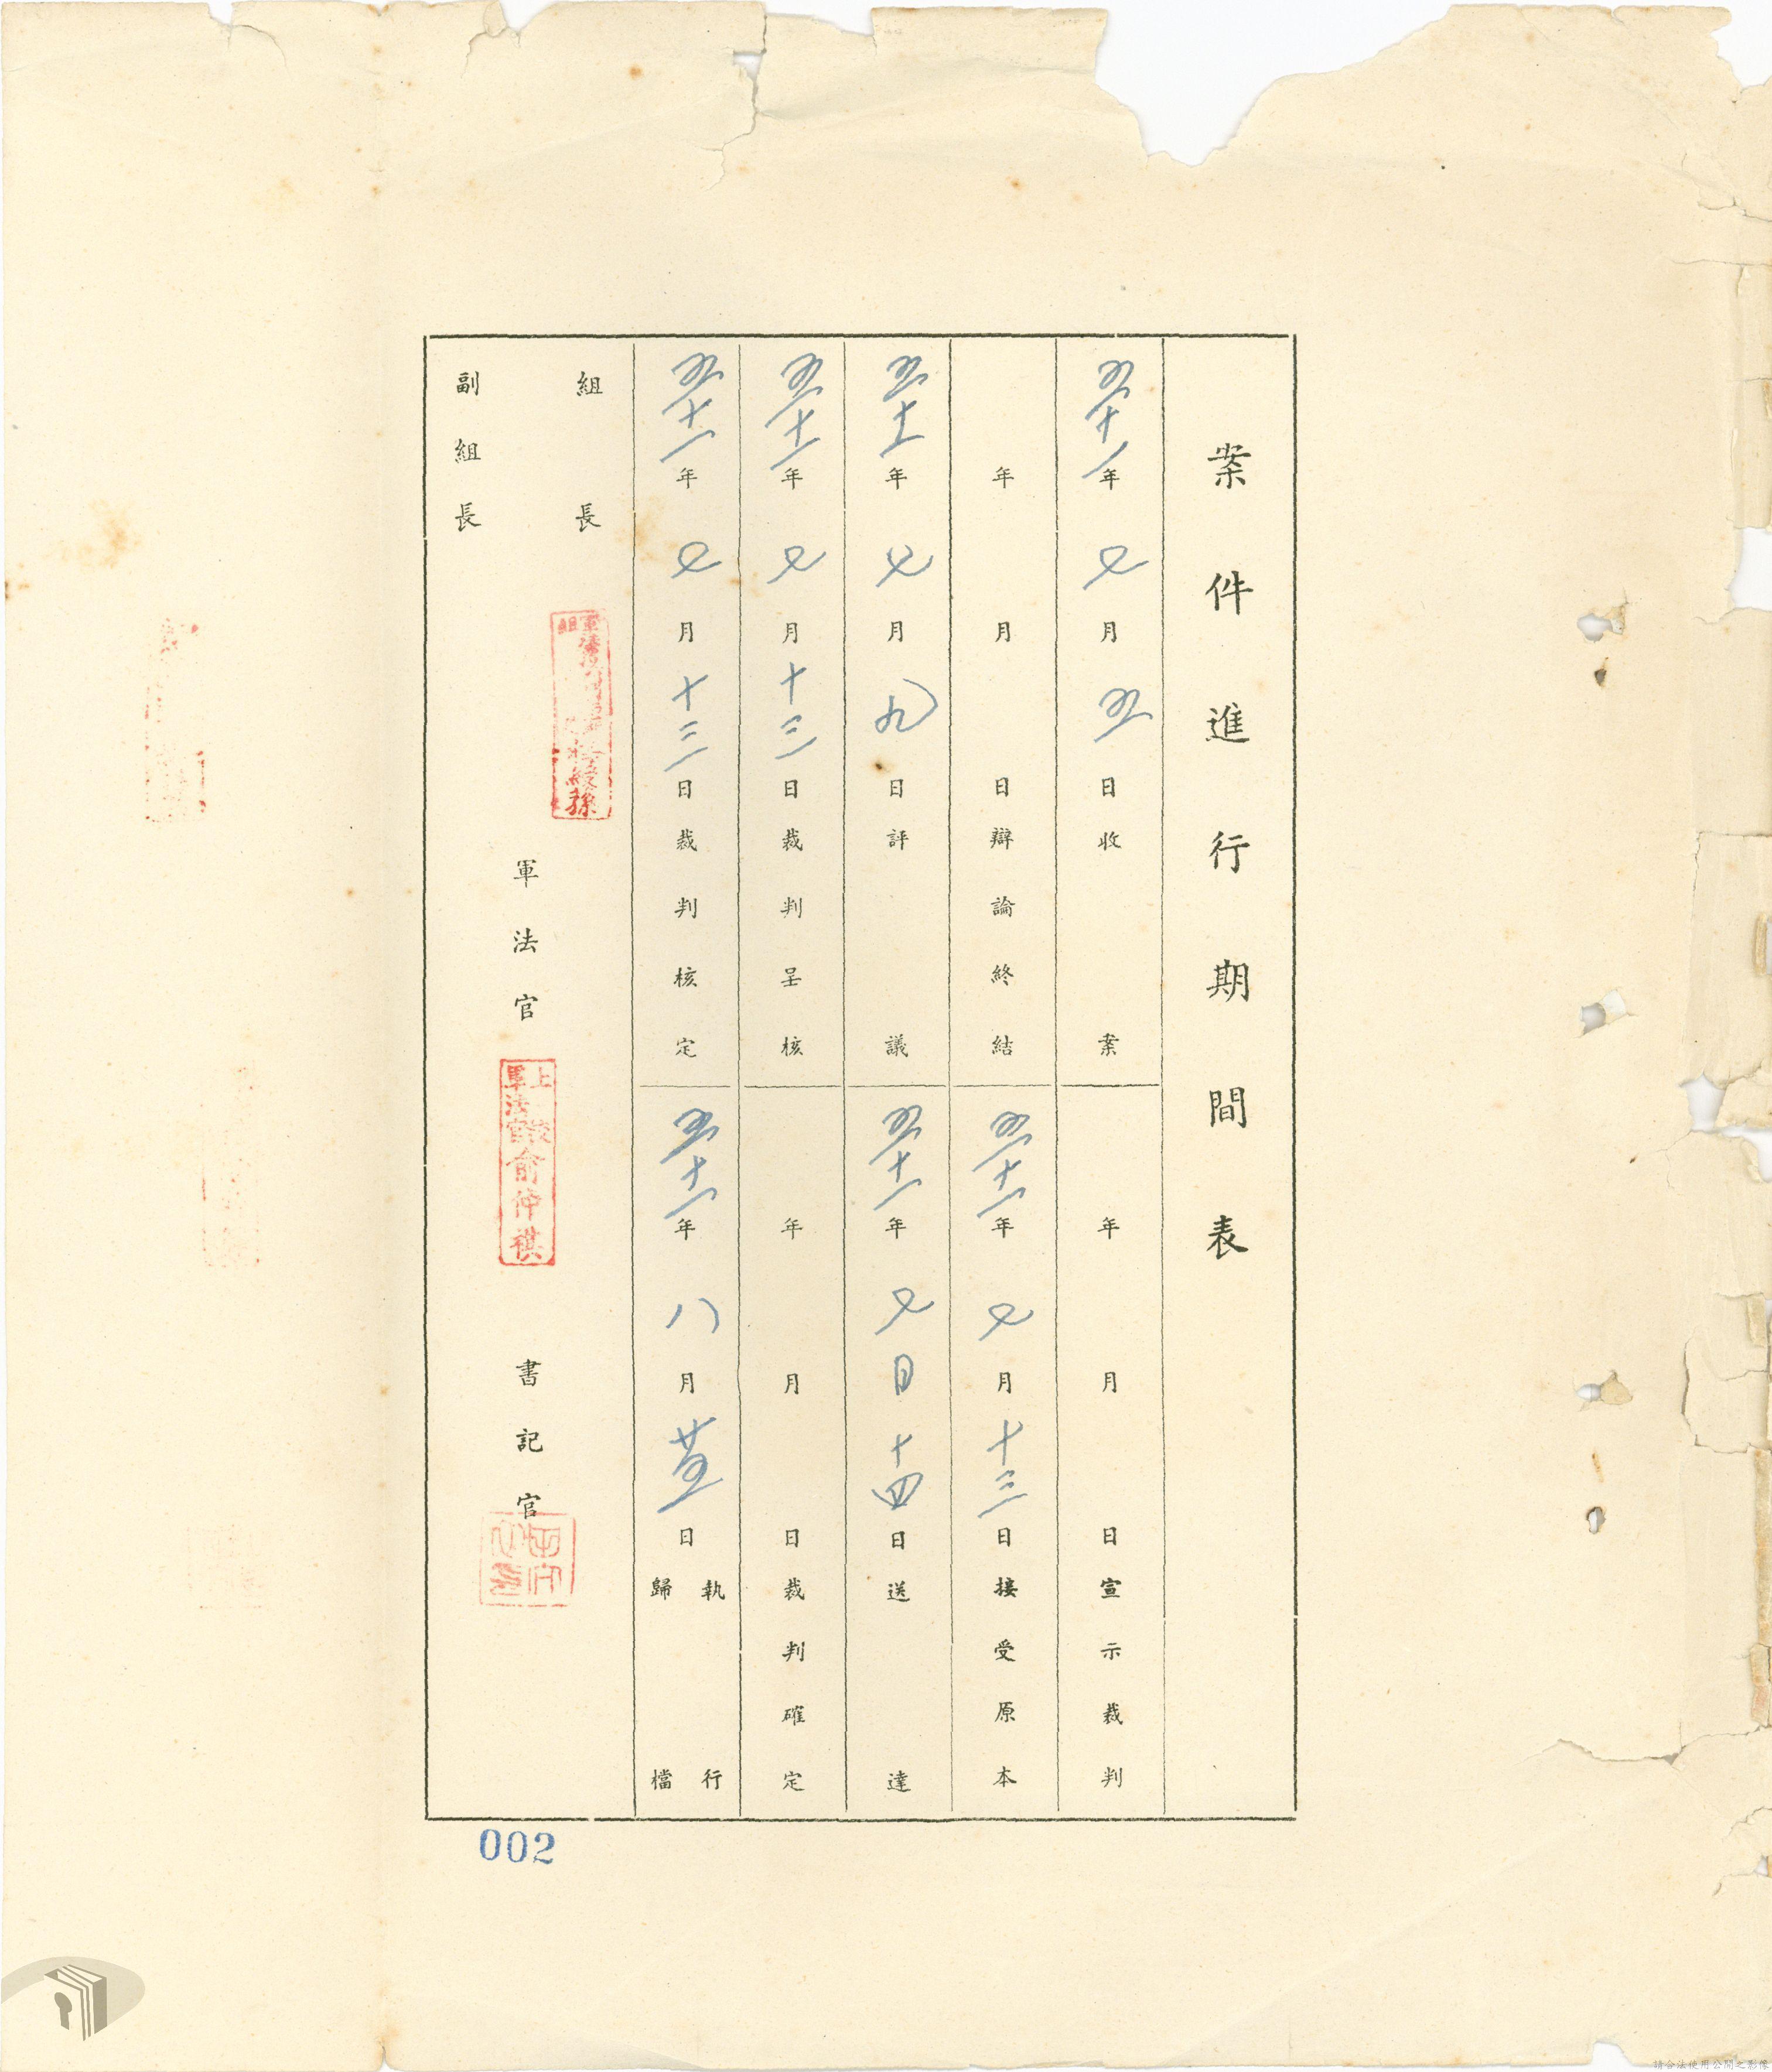 案件進行期間表
五十一年七月五日收案
年月日宣示裁判
年月日辯論終結
五十一年七月十三日接受原本
五十一年七月九日評議
五十一年七月日十四日送達
五十一年七月十三日裁判呈核
年月日裁判確定
五十一年七月十三日裁判核定
五十一年八月廿五日執行歸檔
組長
副組長
軍法官
上校軍法官俞仲祺
書記官
002
請合法使用公開之影像